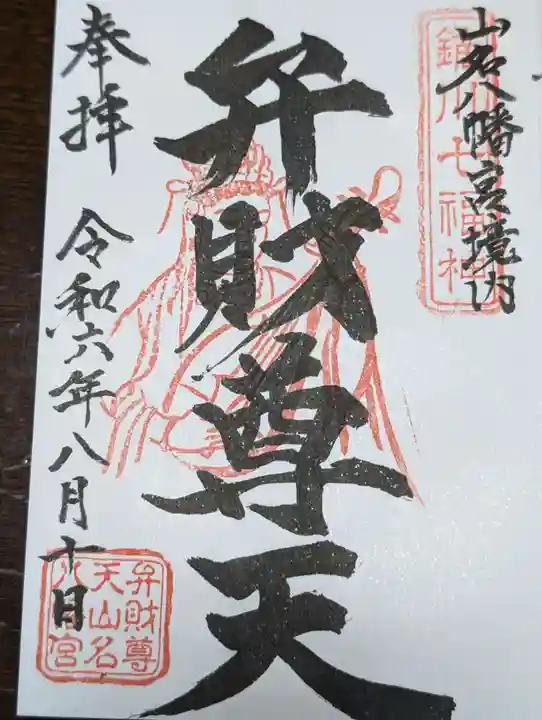 山名八幡宮境内
七福神
弁財尊天
奉拝
令和六年八月十日
弁財尊
天山名
八宮